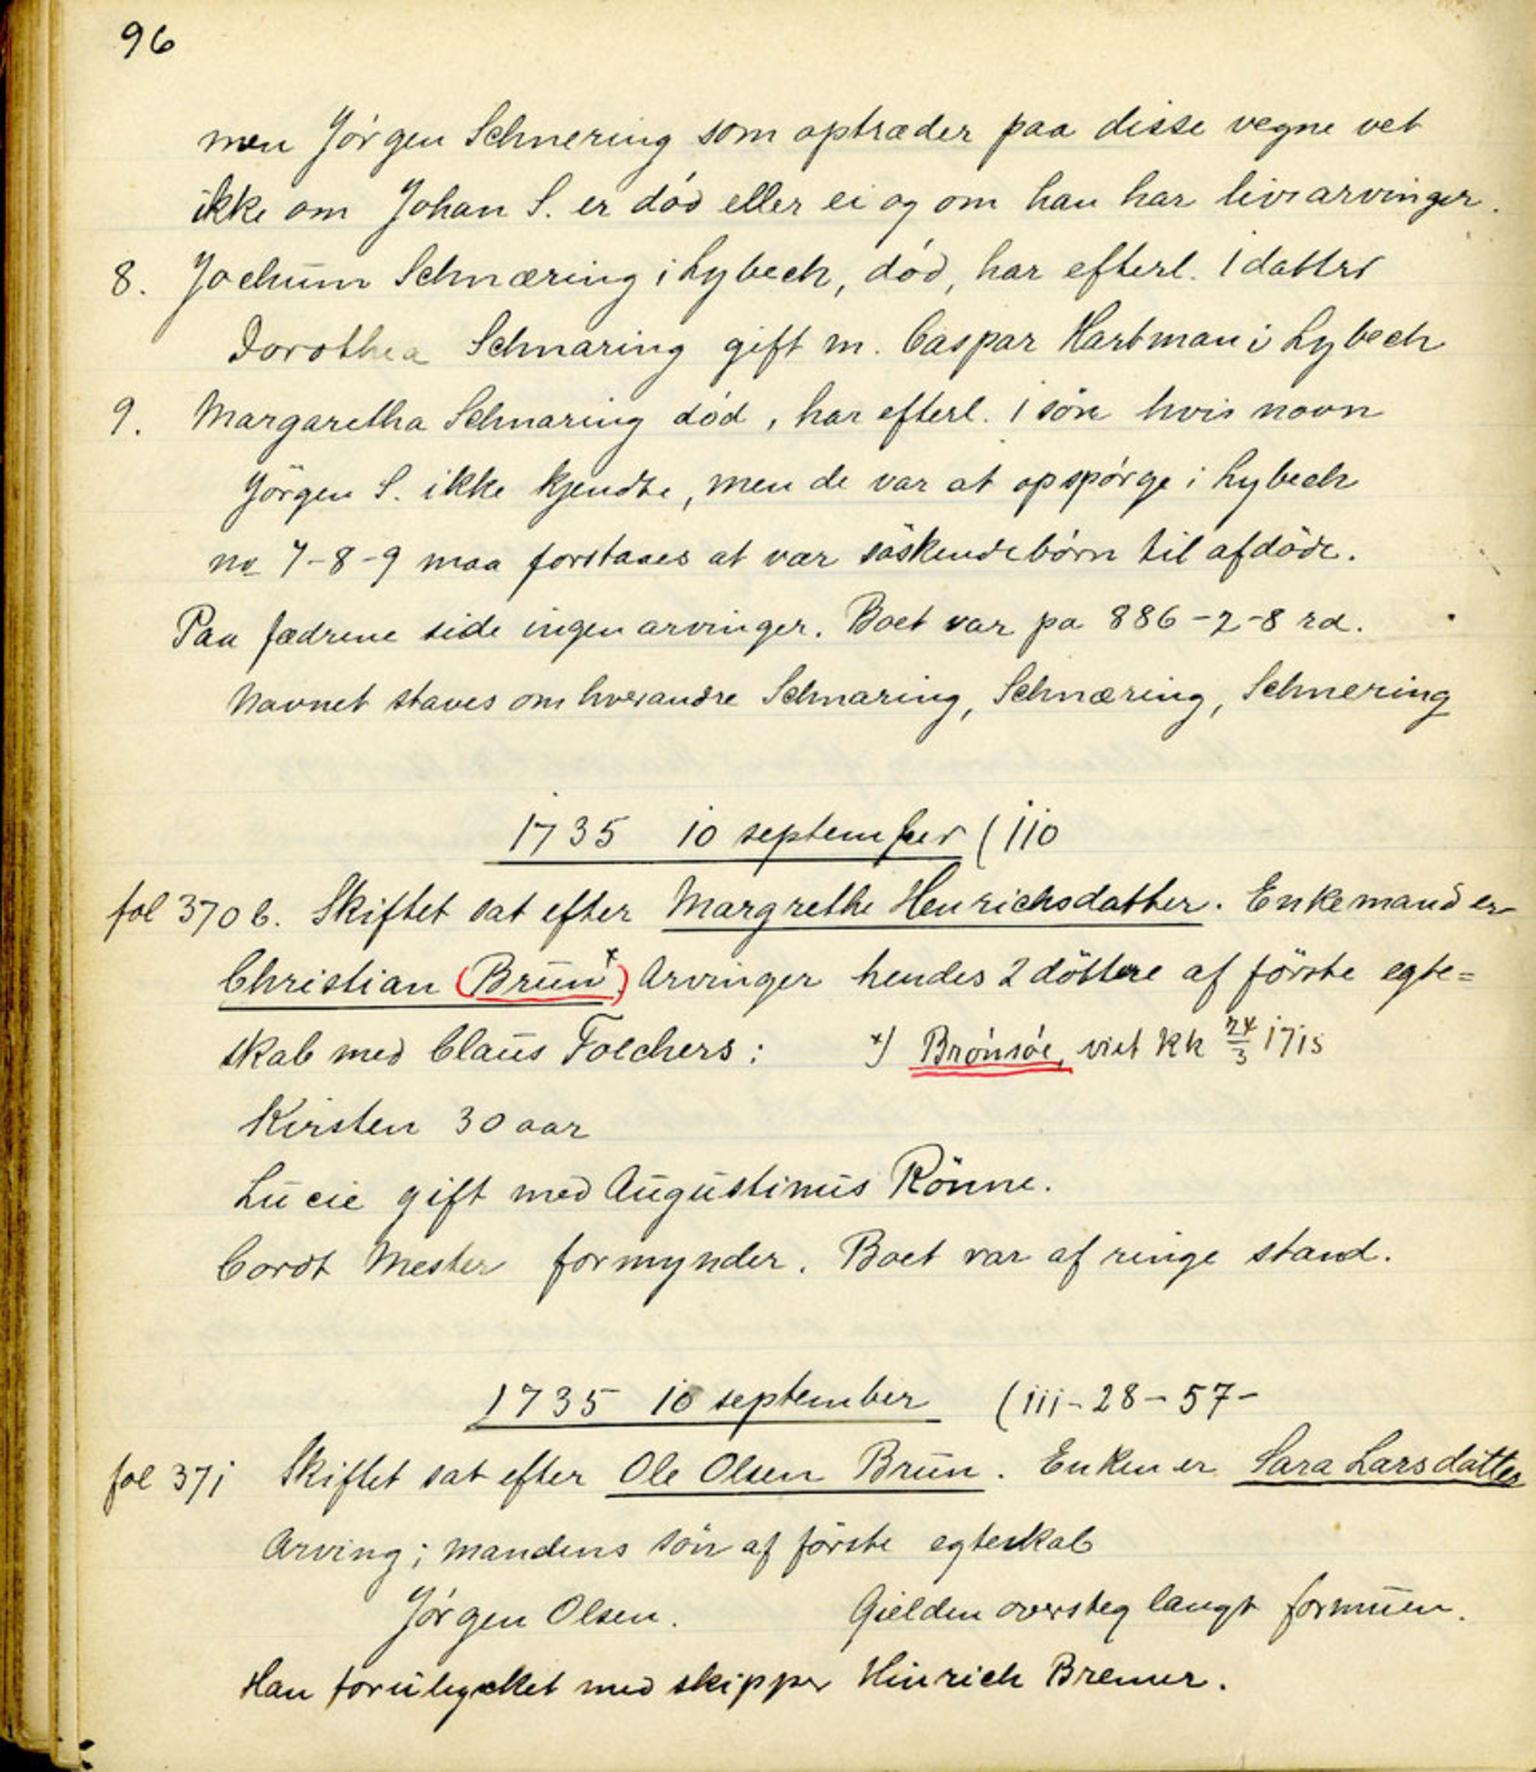 96
men Jörgen Schnering som optræder paa disse vegne vet
ikke om Johan S. er död eller ei og om han har livsarvinger.
8. Jochum Schnæring i Lybech, död, har efterl. 1 datter
Dorothea Schnaring gift m. Caspar Hartman i Lybech
9. Margaretha Schnaring död, har efterl. 1 sön hvis navn
Jörgen S. ikke kjendte, men de var at opspörge i Lybech
no 7-8-9 maa forstaaes at vær söskendebörn til afdöde.
Paa fædrene side ingen arvinger. Boet var pa 886-2-8 rd.
Navnet staves om hverandre Schnaring, Schnæring, Schnering
1735 10 september (110
fol 370 b. Skiftet sat efter Margrethe Henrichsdatter. Enkemand er
Christian (Brun x). Arvinger hendes 2 döttre af förste egte=
skab med Claus Folchers: x) Brönsöe, viet Kk 24/3 1715
Kirsten 30 aar
Lucie gift med Augustinus Rönne.
Cordt Mester formynder. Boet var af ringe stand.
1735 10 september (111-28-57-
fol 371 Skiftet sat efter Ole Olsen Brun. Enken er Sara Larsdatter
Arving; mandens sön af förste egteskab
Jörgen Olsen. Gielden oversteg langt formuen.
Han forulycket med skipper Hinrich Bremer.